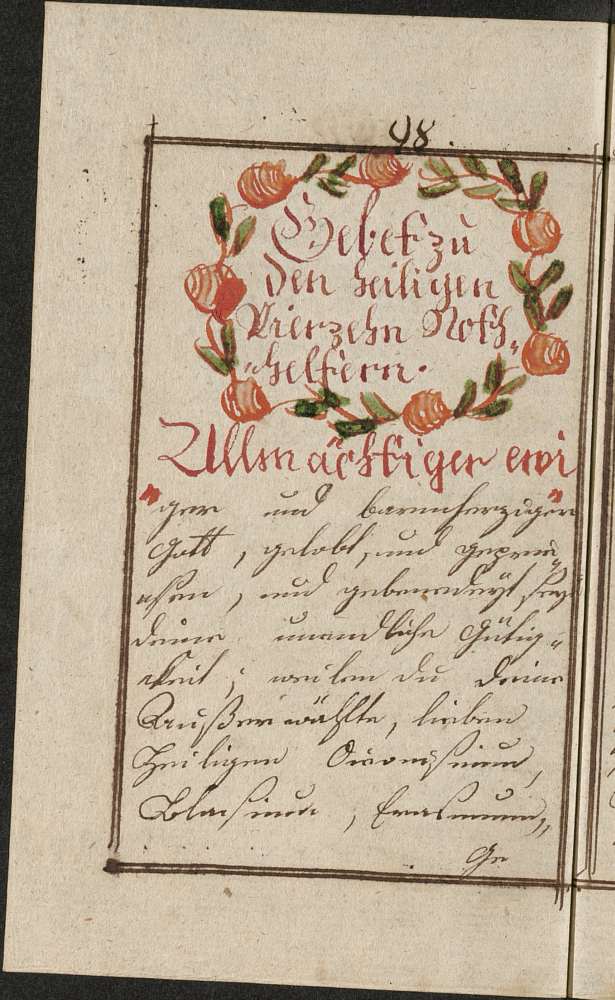 98.
Gebet zu
den heiligen
Vierzehn Noth„
„helfern.
Allmächtiger ewi
"ger und barmherziger
Gott, gelobt, und geprei„
ßen, und gebenedeyt sey
deine unendliche Gütig„
keit; weilen du deine
Außerwählte, lieben
Heiligen Dionÿsium,
Blasium, Erasmum,
Ge